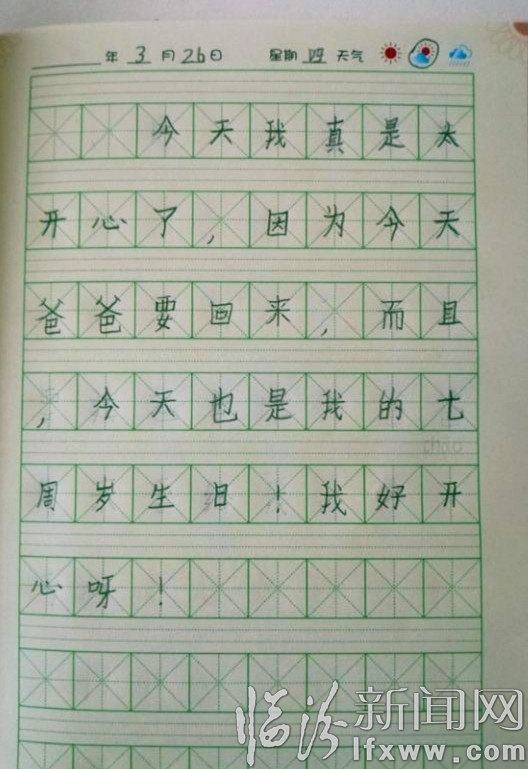 年 3 月 26 日 星期 四 天气
今天我真是太
开心了，因为今天
爸爸要回来，而且
，今天也是我的七
周岁生日！我好开
心呀！
临汾新闻网
lfxww.com